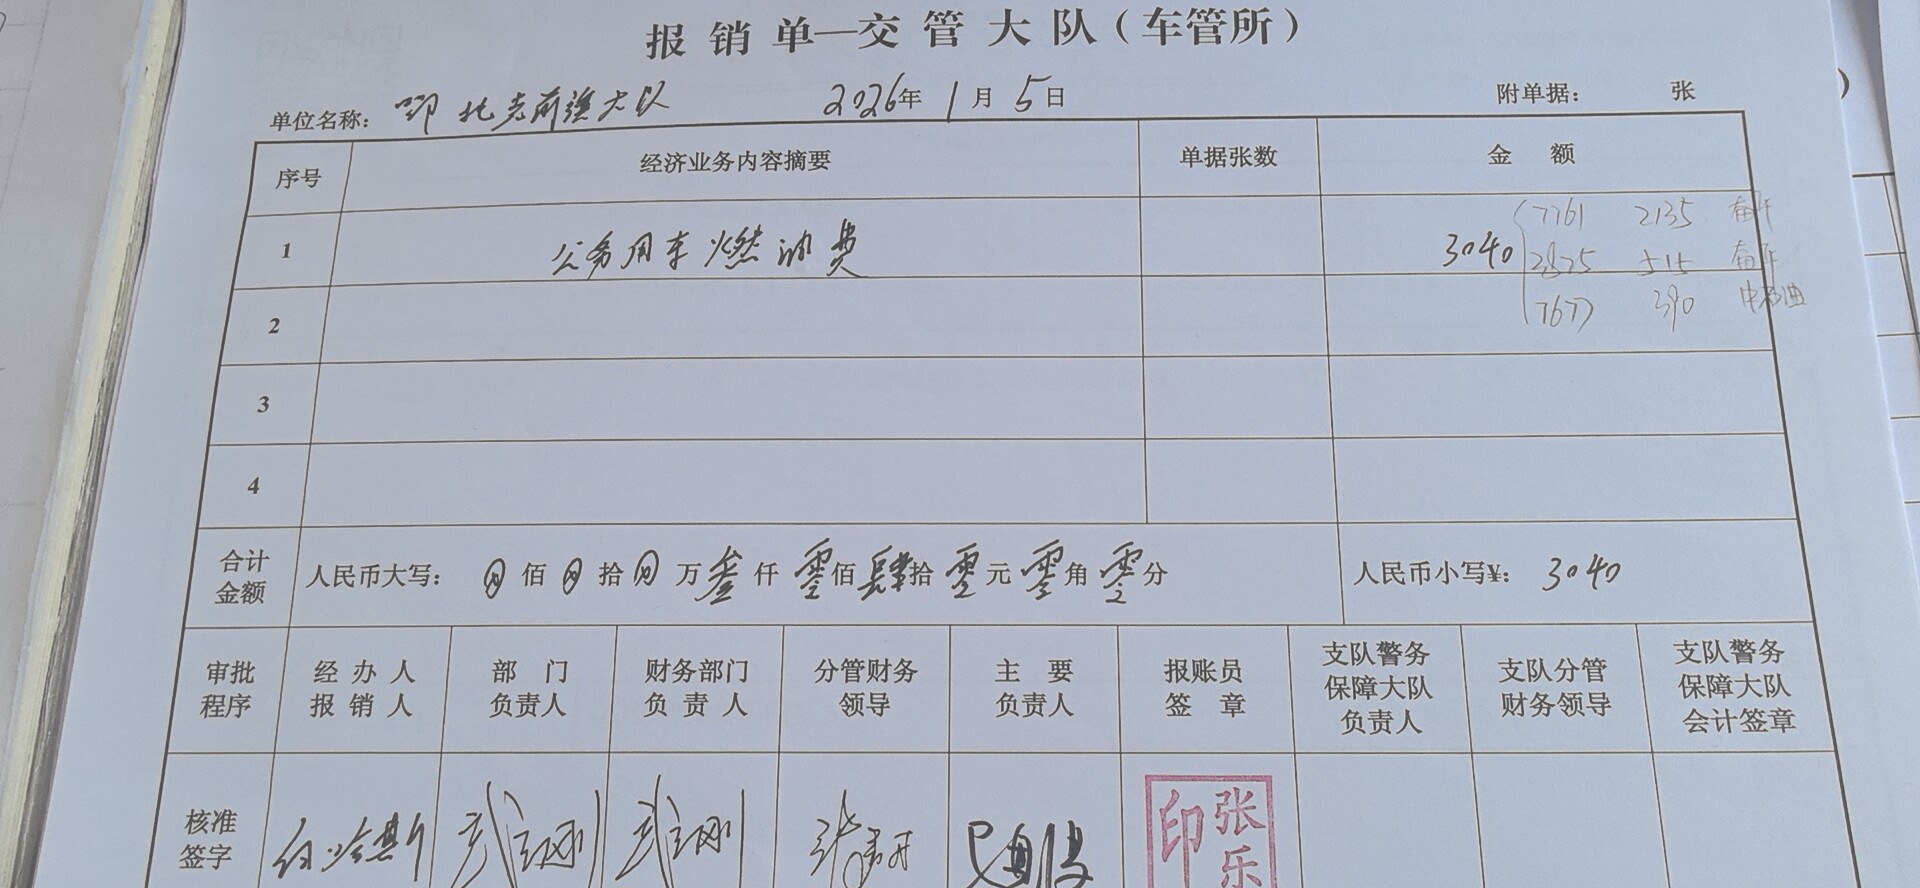 报销单—交管大队（车管所）
单位名称：鄂托克前旗大队 2026年1月5日 附单据： 张
序号 经济业务内容摘要 单据张数 金额
1 公务用车燃油费 3040
7761 2135
2875 515
7677 390 中石油
2
3
4
合计金额 人民币大写： 佰 拾 万叁仟零佰肆拾零元零角零分 人民币小写¥：3040
审批程序 经办人报销人 部门负责人 财务部门负责人 分管财务领导 主要负责人 报账员签章 支队警务保障大队负责人 支队分管财务领导 支队警务保障大队会计签章
核准签字
张乐
印